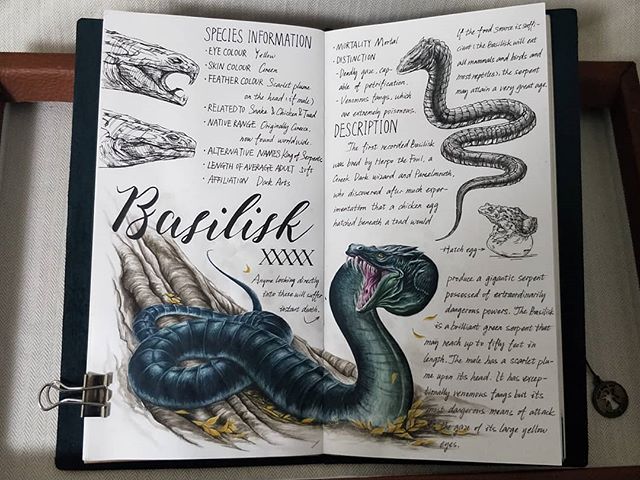 SPECIES INFORMATION
• EYE COLOUR Yellow
• SKIN COLOUR Green
• FEATHER COLOUR Scarlet plume
on the head (if male)
• RELATED TO Snake & Chicken & Toad
• NATIVE RANGE Originally Greece,
now found worldwide.
• ALTERNATIVE NAMES King of Serpents
• LENGTH OF AVERAGE ADULT 50ft
• AFFILIATION Dark Arts
Basilisk
XXXXX
Anyone looking directly
into these will suffer
instant death.
• MORTALITY Mortal
• DISTINCTION
- Deadly gaze, cap-
able of petrification.
- Venomous fangs, which
are extremely poisonous.
If the food source is suffi-
cient (the Basilisk will eat
all mammals and birds and
most reptiles), the serpent
may attain a very great age.
DESCRIPTION
The first recorded Basilisk
was bred by Herpo the Foul, a
Greek Dark wizard and Parselmouth,
who discovered after much exper-
imentation that a chicken egg
hatched beneath a toad would
Hatch egg
produce a gigantic serpent
possessed of extraordinarily
dangerous powers. The Basilisk
is a brilliant green serpent that
may reach up to fifty feet in
length. The male has a scarlet plu-
me upon its head. It has excep-
tionally venomous fangs but its
most dangerous means of attack
is the gaze of its large yellow
eyes.